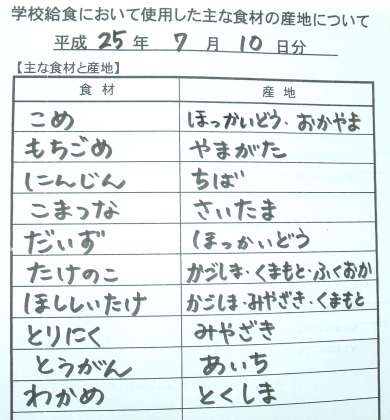 学校給食において使用した主な食材の産地について
平成 25 年 7 月 10 日分
【主な食材と産地】
食材 産地
こめ ほっかいどう・おかやま
もちごめ やまがた
にんじん ちば
こまつな さいたま
だいず ほっかいどう
たけのこ かごしま・くまもと・ふくおか
ほししいたけ かごしま・みやざき・くまもと
とりにく みやざき
とうがん あいち
わかめ とくしま